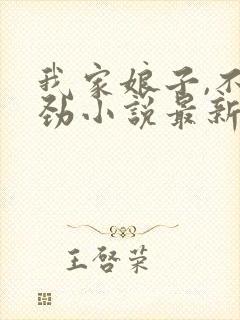 我家娘子,不
劲小说最新
王啓荣